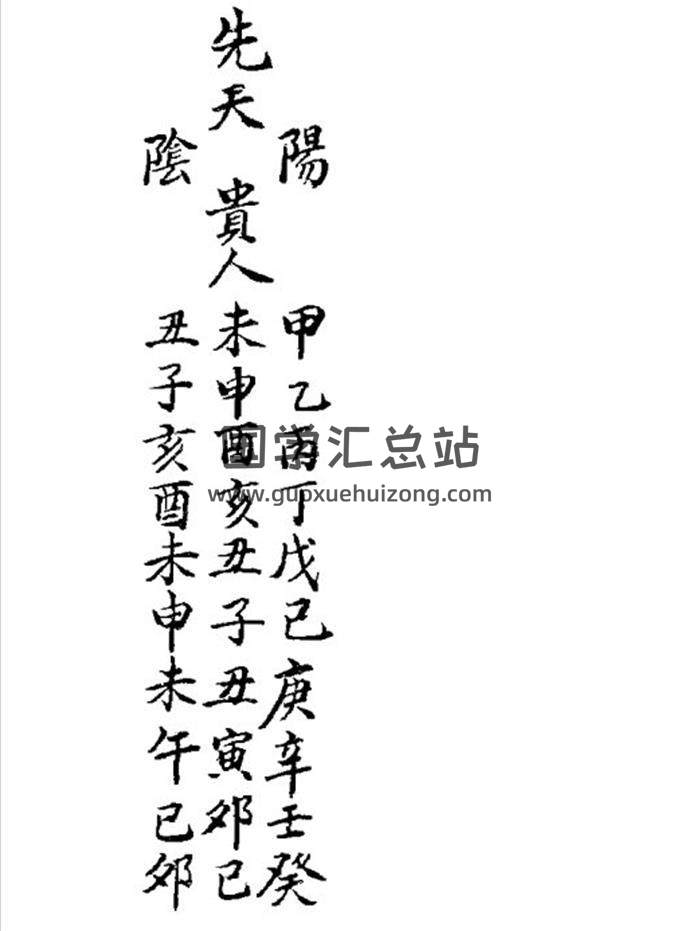 先天
陽 貴人 陰
甲乙丙丁戊己庚辛壬癸
未申酉亥丑子丑寅卯巳
丑子亥酉未申未午巳卯
国学汇总站
www.guoxuehuizong.com